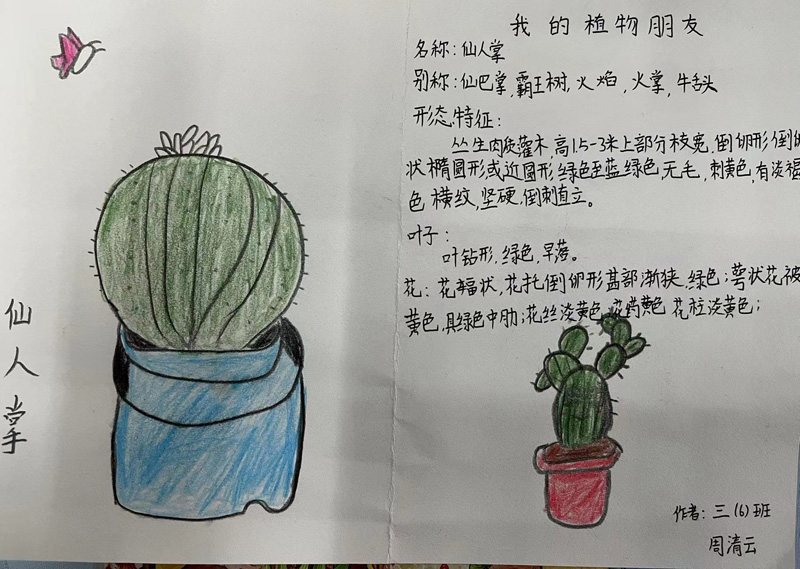 仙人掌
我的植物朋友
名称：仙人掌
别称：仙巴掌，霸王树，火焰，火掌，牛舌头
形态特征：
丛生肉质灌木，高1.5-3米上部分枝宽，倒卵形倒卵
状椭圆形或近圆形，绿色至蓝绿色，无毛，刺黄色，有淡褐
色横纹，坚硬，倒刺直立。
叶子：
叶钻形，绿色，早落。
花：花辐状，花托倒卵形基部渐狭，绿色；萼状花被
黄色，具绿色中肋；花丝淡黄色，花药黄色 花柱淡黄色；
作者：三（6）班
周清云